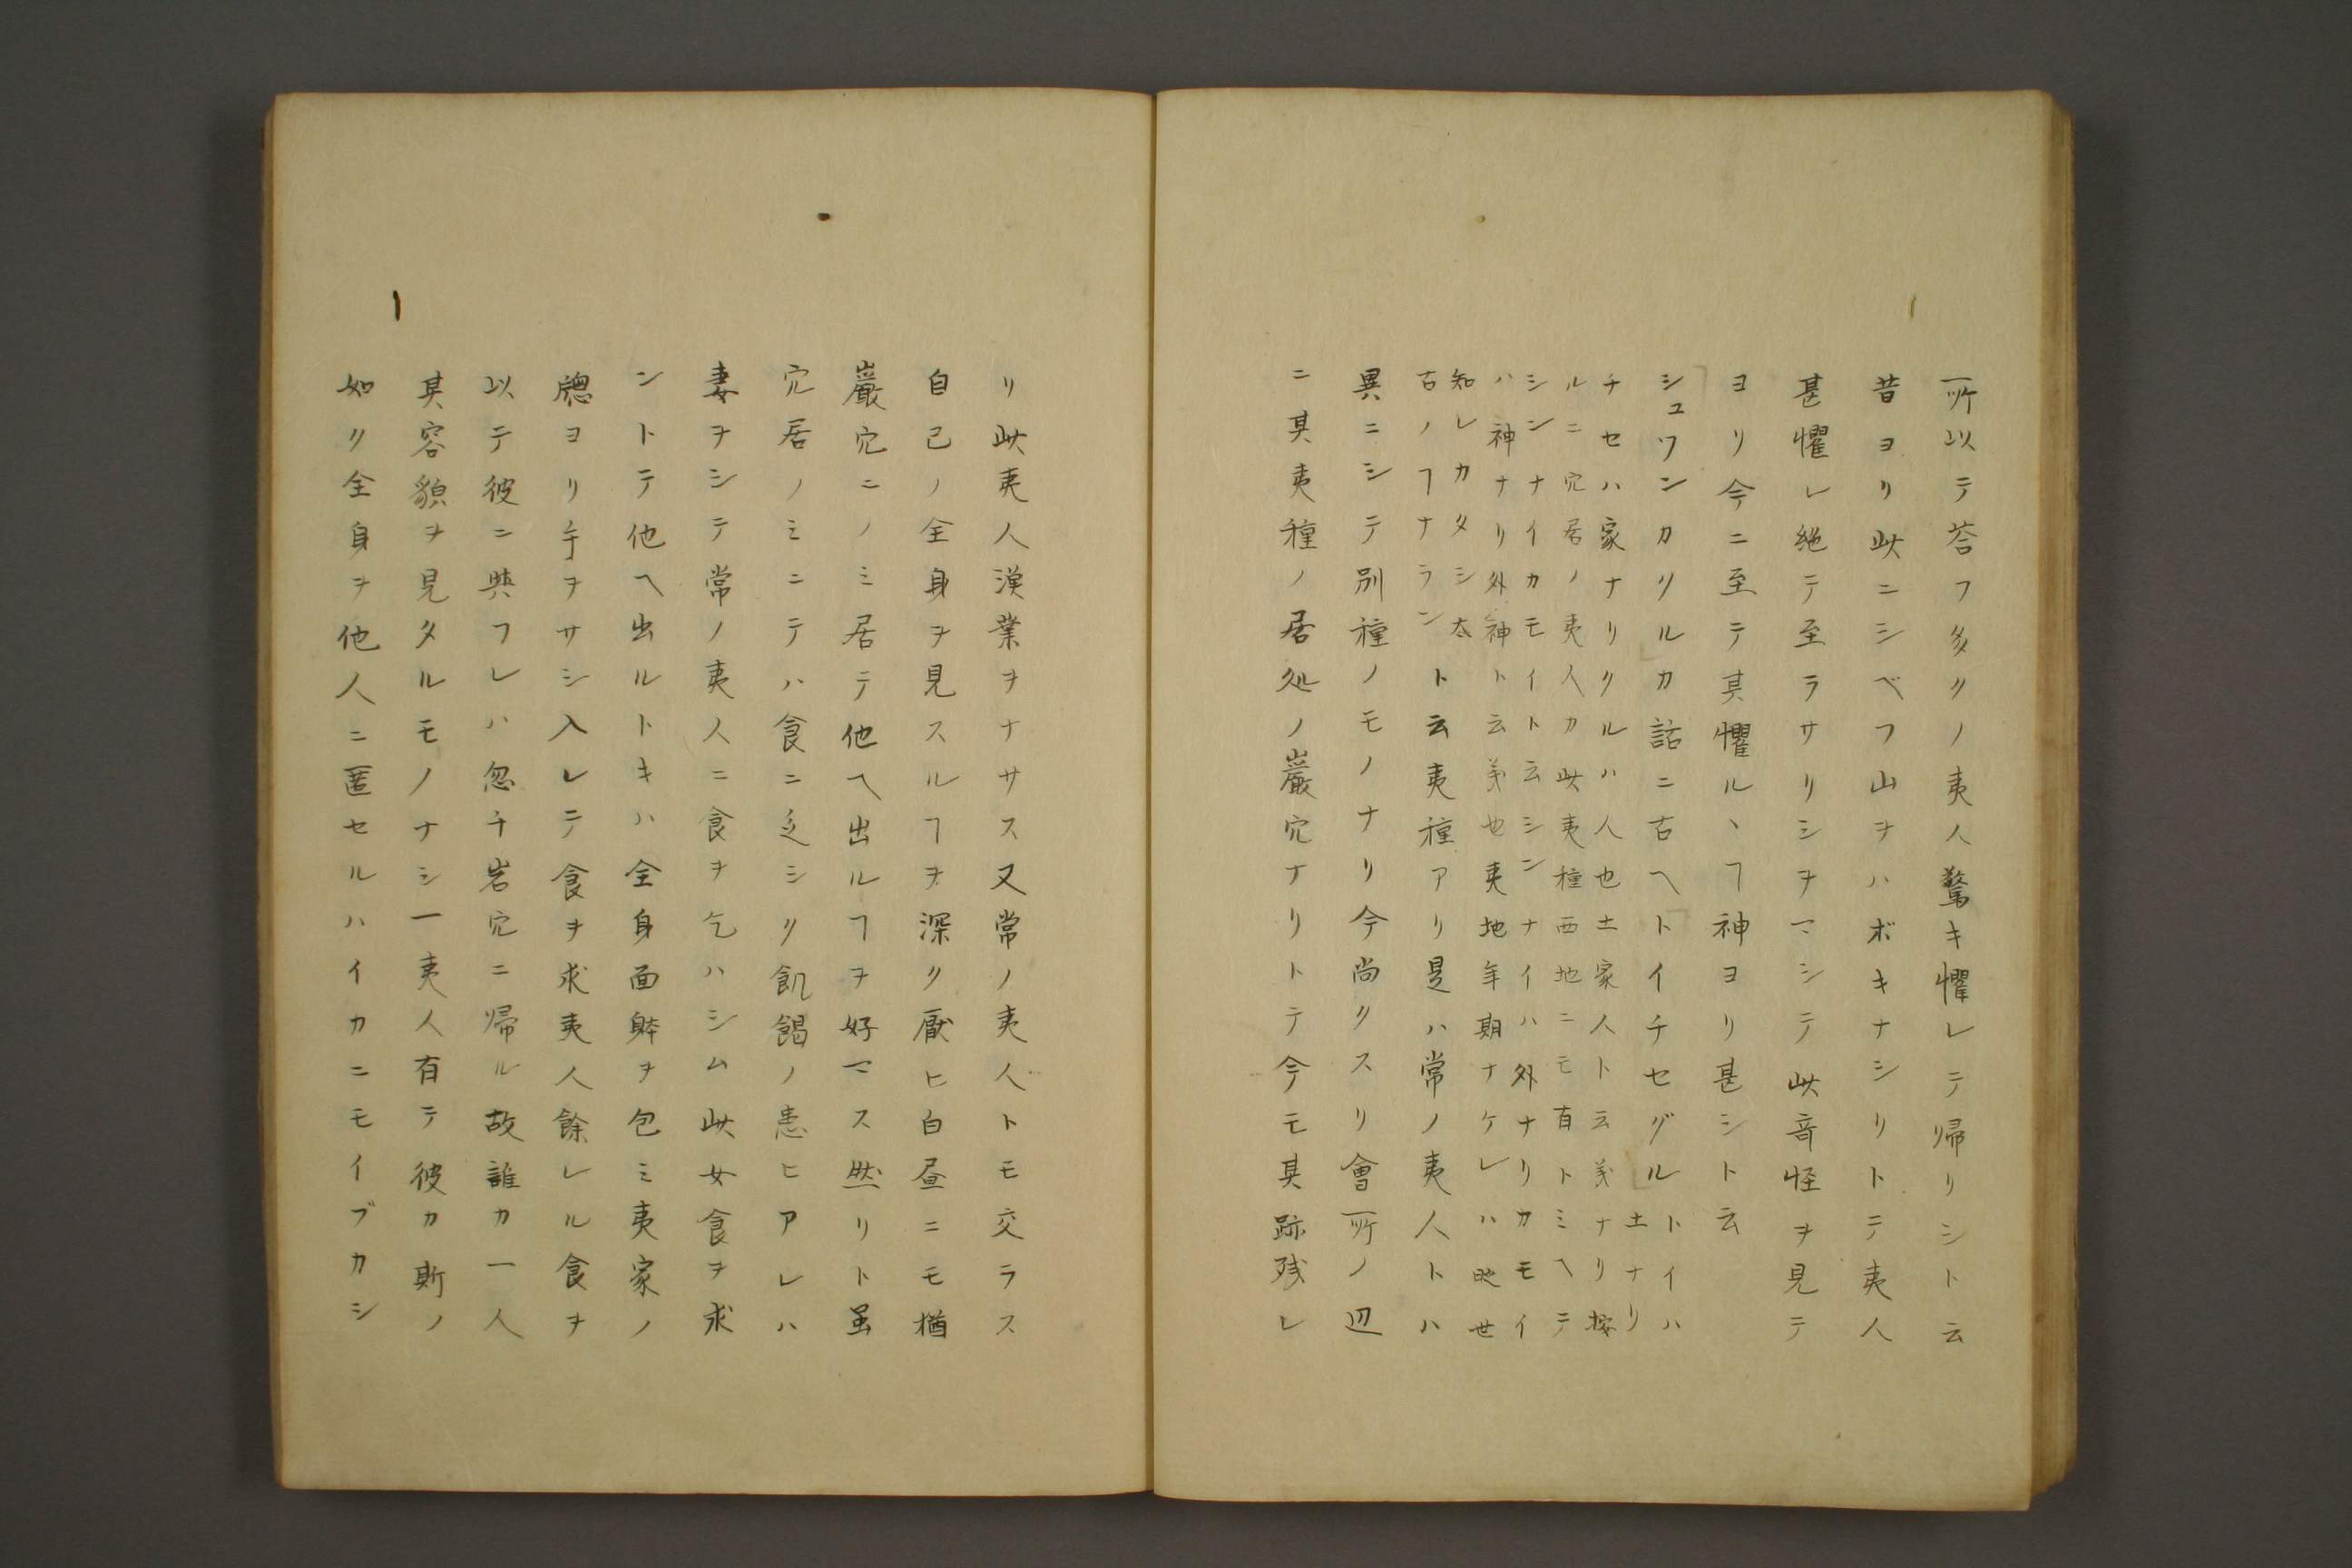 所以テ答フ多クノ夷人驚キ懼レテ帰リシト云
昔ヨリ此ニシベフ山ヲハボキナシリトテ夷人
甚懼レ絶テ至ラサリシヲマシテ此竒怪ヲ見テ
ヨリ今ニ至テ其懼ルヽヿ神ヨリ甚シト云
シユワンカリルカ話ニ古ヘトイチセグルトイハ
土ナリ
チセハ家ナリクルハ人也土家人ト云義ナリ按
ルニ穴居ノ夷人カ此夷種西地ニモ有トミヘテ
シンシナイカモイト云シンナイハ外ナリカモイ
ハ神ナリ外神ト云義也夷地年期ナケレハ世
知レカタシ太
古ノヿナラン
ト云夷種アリ是ハ常ノ夷人トハ
異ニシテ別種ノモノナリ今尚クスリ會所ノ辺
ニ其夷種ノ居処ノ巖穴ナリトテ今モ其跡残レ
リ此夷人漁業ヲナサス又常ノ夷人トモ交ラス
自己ノ全身ヲ見スルヿヲ深ク厭ヒ白昼ニモ猶
巖穴ニノミ居テ他ヘ出ルヿヲ好マス然リト虽
穴居ノミニテハ食ニ乏シク飢餲ノ患ヒアレハ
妻ヲシテ常ノ夷人ニ食ヲ乞ハシム此女食ヲ求
ントテ他ヘ出ルトキハ全身面躰ヲ包ミ夷家ノ
牕ヨリ手ヲサシ入レテ食ヲ求夷人餘レル食ヲ
以テ彼ニ與フレハ忽チ岩穴ニ帰ル故誰カ一人
其容貌ヲ見タルモノナシ一夷人有テ彼カ斯ノ
如ク全身ヲ他人ニ匿セルハイカニモイブカシ